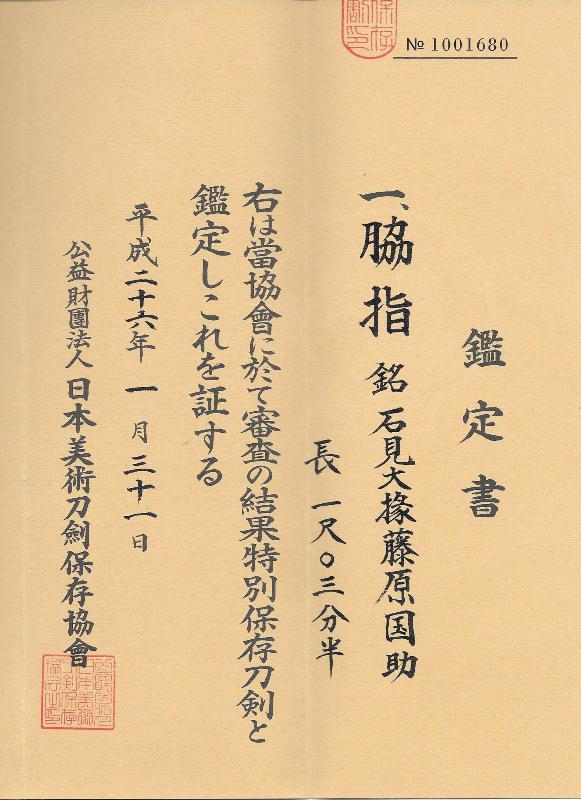 № 1001680
鑑定書
一、脇指 銘 石見大掾藤原国助
長 一尺〇三分半
右は當協會に於て審査の結果特別保存刀劍と
鑑定しこれを証する
平成二十六年一月三十一日
公益財團法人 日本美術刀劍保存協會